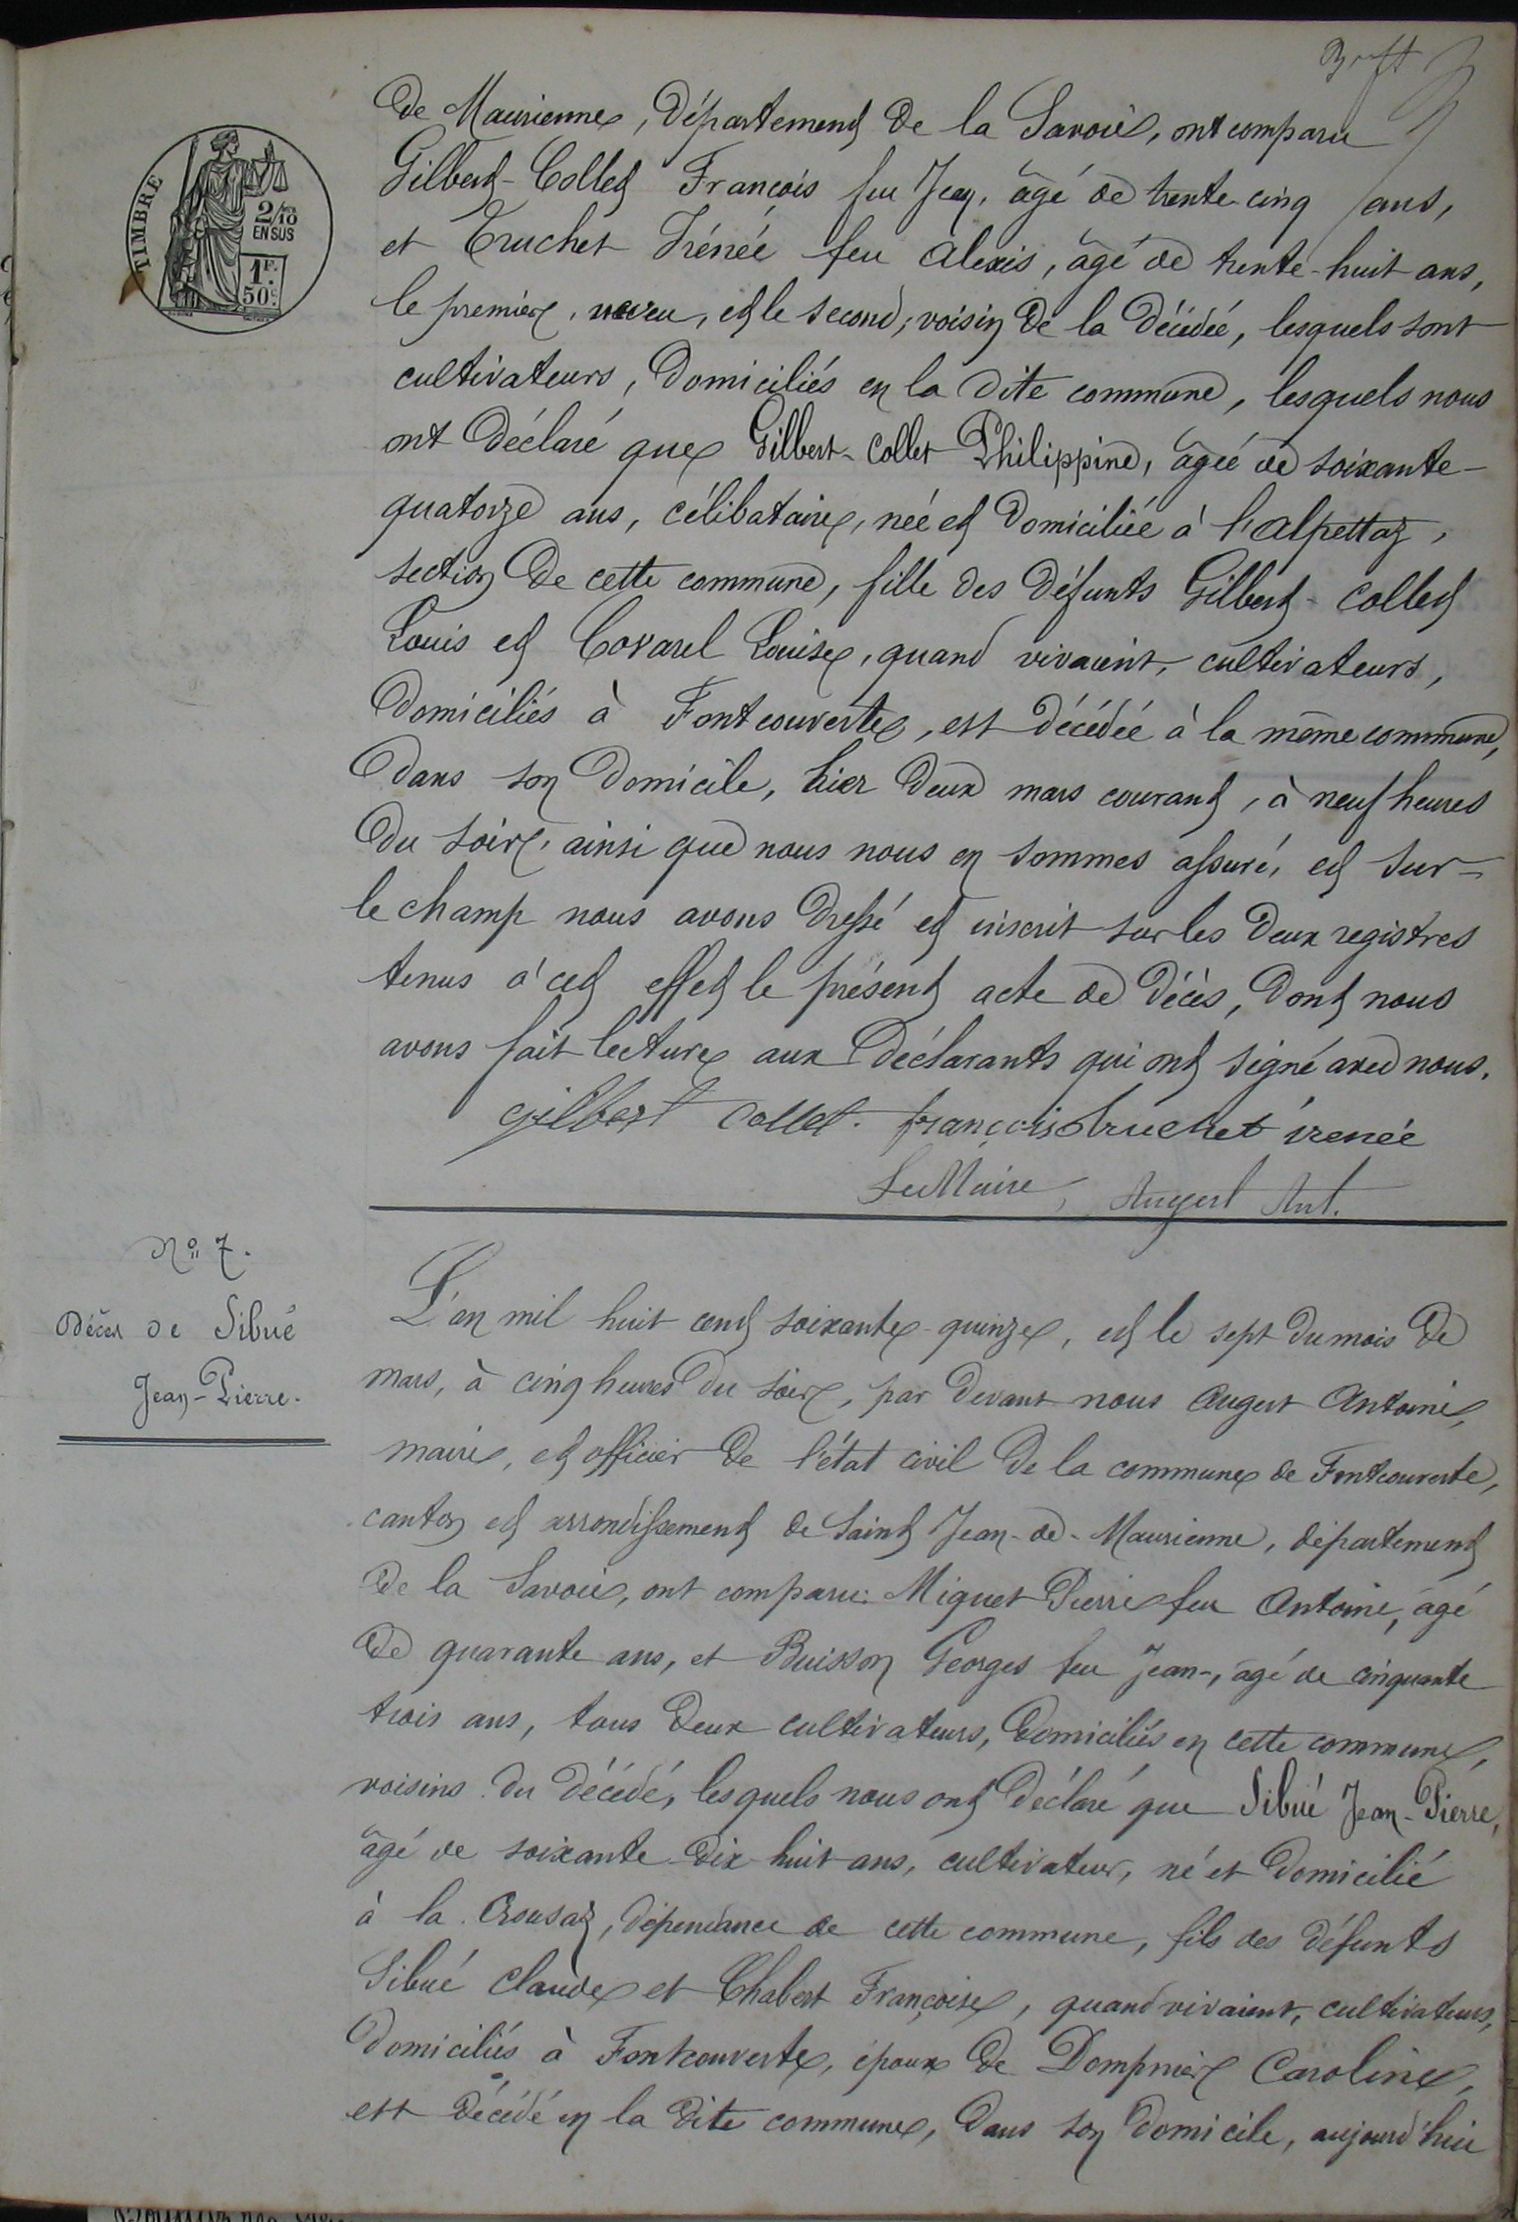 de Maurienne, département de la Savoie, ont comparu
Gilbert-Collet François feu Jean, âgé de trente cinq ans,
et Truchet Irénée feu Alexis, âgé de trente-huit ans,
le premier, neveu, et le second, voisin de la décédée, lesquels sont
cultivateurs, domiciliés en la dite commune, lesquels nous
ont déclaré que Gilbert-Collet Philippine, âgée de soixante-
quatorze ans, célibataire, née et domiciliée à l'alpettaz,
section de cette commune, fille des défunts Gilbert-Collet
Louis et Covarel Louise, quand vivaient, cultivateurs,
domiciliés à Fontcouverte, est décédée à la même commune,
dans son domicile, hier deux mars courant, à neuf heures
du soir, ainsi que nous nous en sommes assuré, et sur-
le champ nous avons dressé et inscrit sur les deux registres
tenus à cet effet le présent acte de décès, dont nous
avons fait lecture aux déclarants qui ont signé avec nous.
gilbert Collet. françois truchet irenée
Le Maire, Augert Ant.
TIMBRE
2/10 EN SUS
1F. 50c.
N° 7.
Décès de Sibué
Jean-Pierre.
L'an mil huit cent soixante-quinze, et le sept du mois de
mars, à cinq heures du soir, par devant nous Augert Antoine,
maire, et officier de l'état civil de la commune de Fontcouverte,
canton et arrondissement de Saint Jean-de-Maurienne, département
de la Savoie, ont comparu: Miquet Pierre feu Antoine, âgé
de quarante ans, et Buisson Georges feu Jean-, âgé de cinquante
trois ans, tous deux cultivateurs, domiciliés en cette commune,
voisins du décédé, lesquels nous ont déclaré que Sibué Jean-Pierre,
âgé de soixante-dix-huit ans, cultivateur, né et domicilié
à la Crousaz, dépendance de cette commune, fils des défunts
Sibué Claude et Chabert Françoise, quand vivaient, cultivateurs,
domiciliés à Fontcouverte, époux de Dompnier Caroline,
est décédé en la dite commune, dans son domicile, aujourd'hui